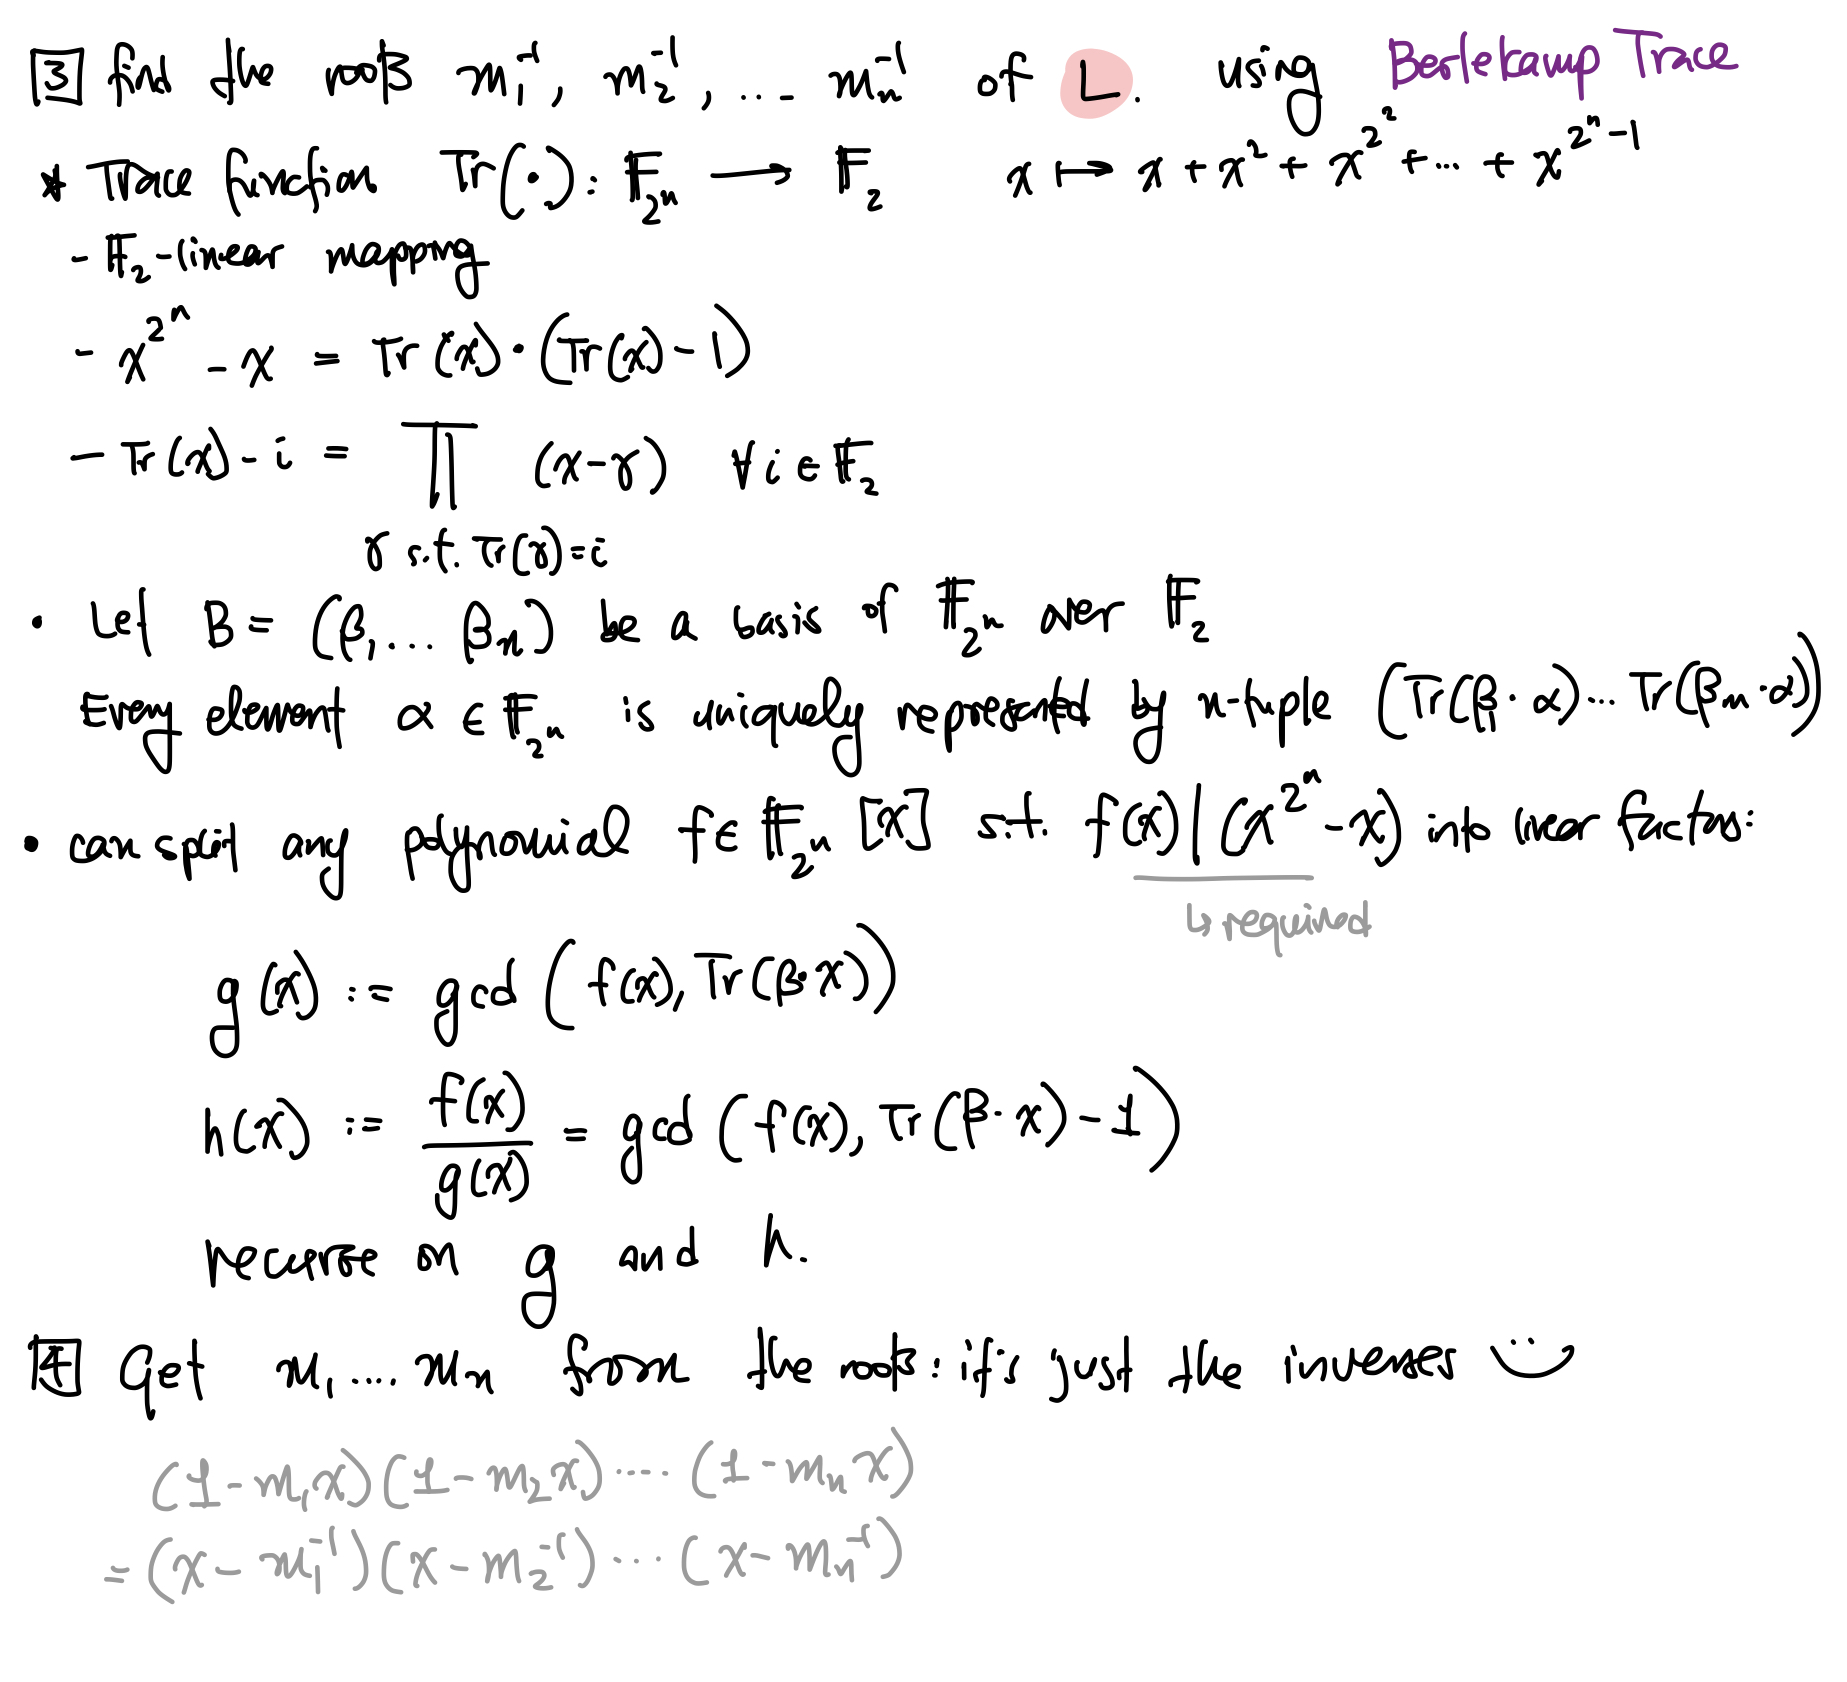 3 find the roots m₁⁻¹, m₂⁻¹, .... mₙ⁻¹ of L. using Berlekamp Trace
* Trace function Tr(•): 𝔽_{2ⁿ} ⟶ 𝔽₂ x ↦ x + x² + x^{2²} + ... + x^{2ⁿ-1}
- 𝔽₂-linear mapping
- x^{2ⁿ} - x = Tr(x) • (Tr(x) - 1)
- Tr(x) - i = ∏ (x - γ) ∀ i ∈ 𝔽₂
γ s.t. Tr(γ)=i
• Let B = (β₁ ... βₙ) be a basis of 𝔽_{2ⁿ} over 𝔽₂
Every element α ∈ 𝔽_{2ⁿ} is uniquely represented by n-tuple (Tr(β₁·α)... Tr(βₙ·α))
• can split any polynomial f ∈ 𝔽_{2ⁿ}[x] s.t. f(x) | (x^{2ⁿ} - x) into linear factors:
↳ required
g(x) := gcd (f(x), Tr(β·x))
h(x) := f(x)/g(x) = gcd (f(x), Tr(β·x) - 1)
recurse on g and h.
4 Get m₁ .... mₙ from the roots: it's just the inverses ‿̈
(1 - m₁x)(1 - m₂x) ···· (1 - mₙx)
= (x - m₁⁻¹)(x - m₂⁻¹) ···· (x - mₙ⁻¹)